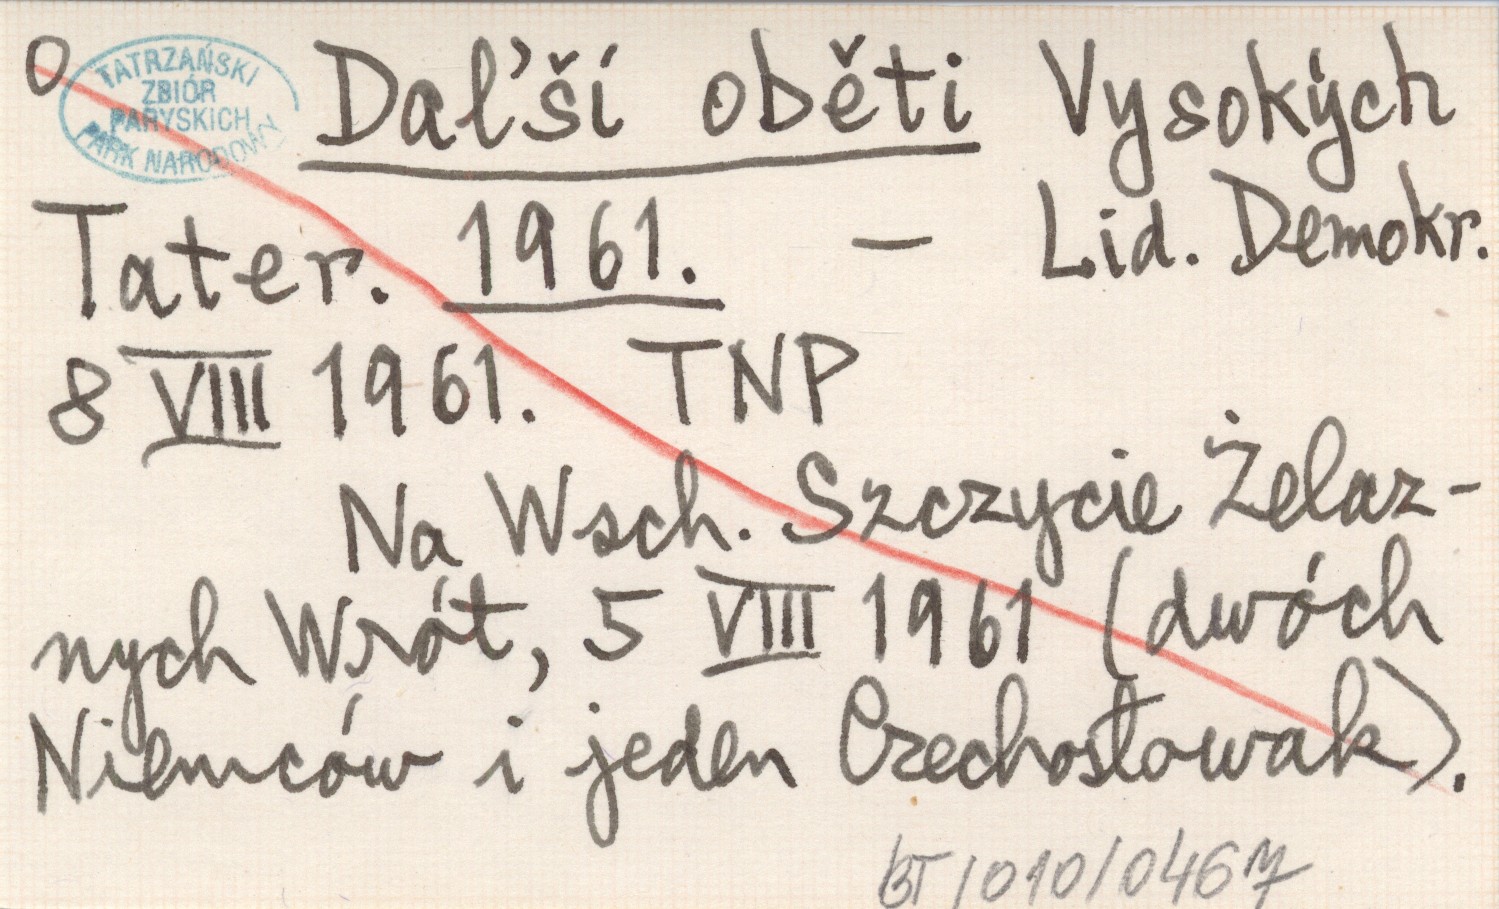 O
TATRZAŃSKI
ZBIÓR
PARYSKICH
PARK NARODOWY
Daľší oběti Vysokých
Tater. 1961. — Lid. Demokr.
8 VIII 1961. TNP
Na Wsch. Szczycie Żelaz-
nych Wrót, 5 VIII 1961 (dwóch
Niemców i jeden Czechosłowak).
BT/010/0467